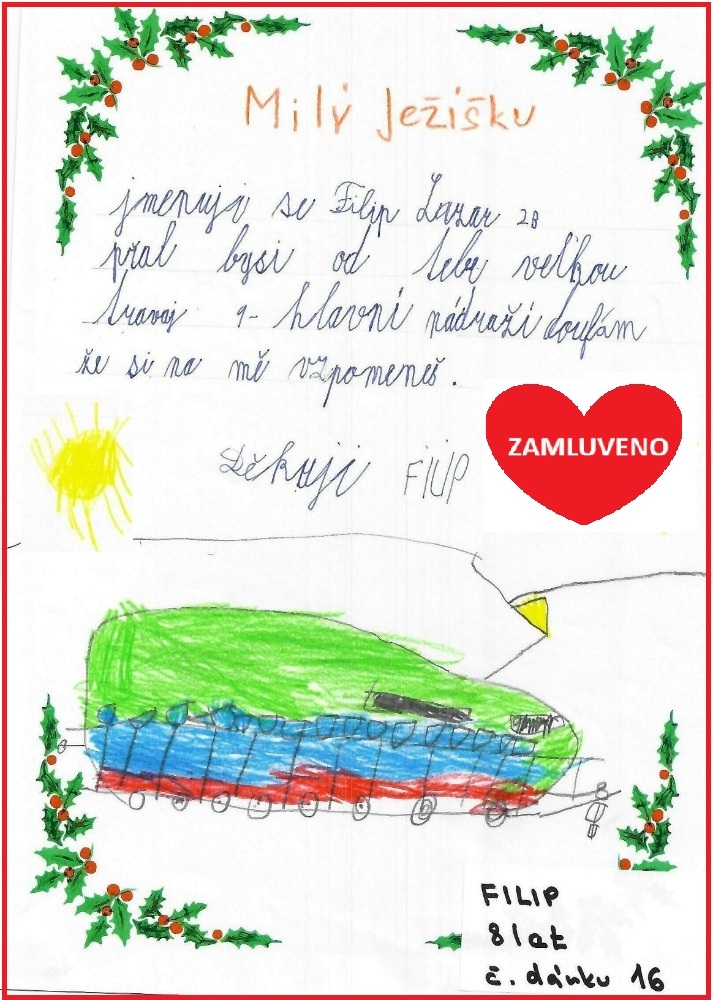 Milý Ježíšku
jmenuji se Filip Lazar 2B
přal bysi od tebe velkou
travaj 9- hlavní nádraží doufám
že si na mě vzpomeneš.
ZAMLUVENO
Děkuji FILIP
FILIP
8 let
č. dánku 16